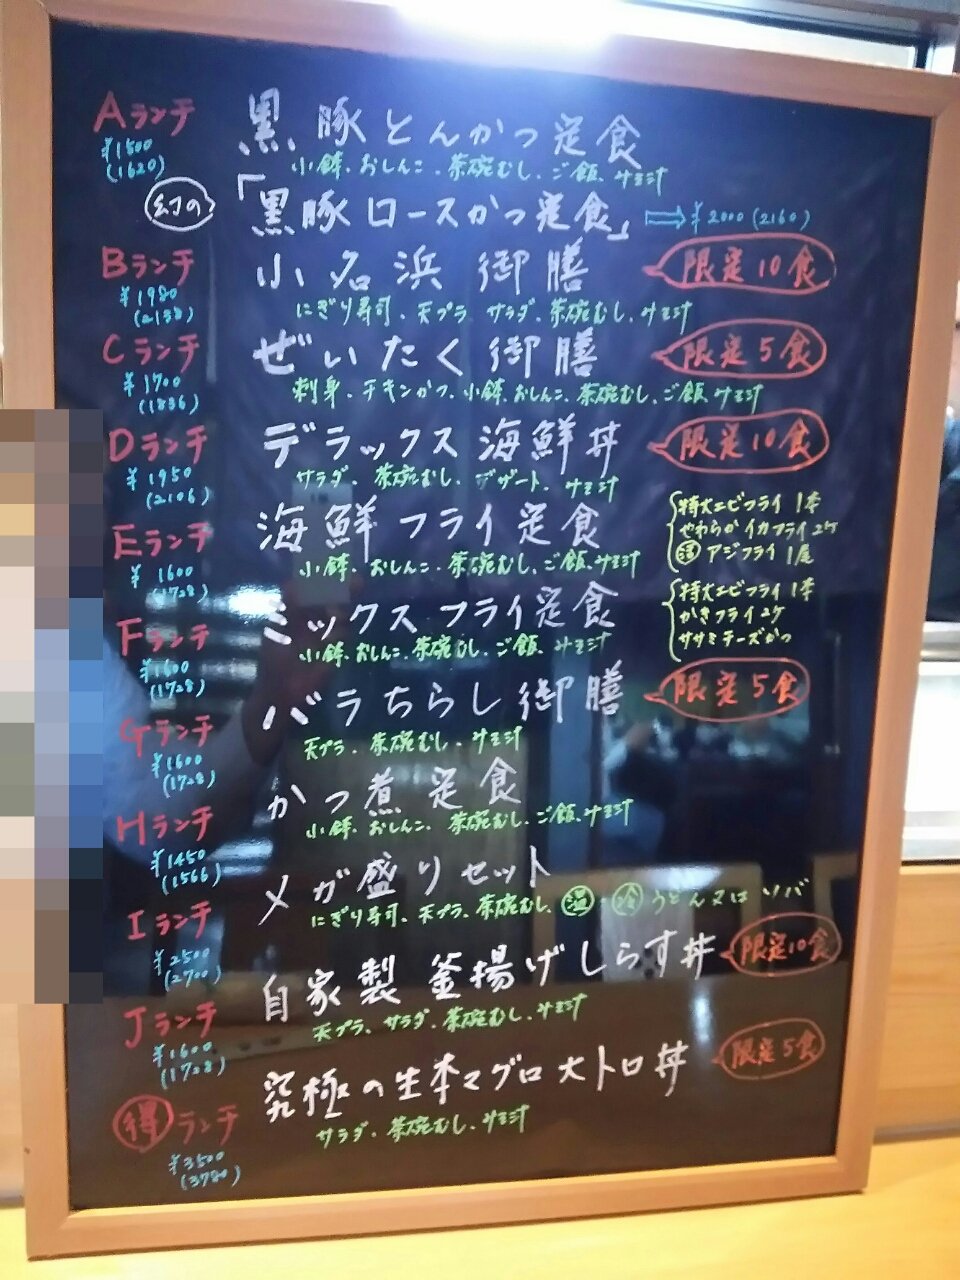 Aランチ 黒豚とんかつ定食
¥1500
(1620)
小鉢、おしんこ、茶碗むし、ご飯、みそ汁
幻の 「黒豚ロースかつ定食」 ⇒ ¥2000 (2160)
Bランチ 小名浜御膳 限定10食
¥1980
(2138)
にぎり寿司、天プラ、サラダ、茶碗むし、みそ汁
Cランチ ぜいたく御膳 限定5食
¥1700
(1836)
刺身、チキンかつ、小鉢、おしんこ、茶碗むし、ご飯、みそ汁
Dランチ デラックス海鮮丼 限定10食
¥1950
(2106)
サラダ、茶碗むし、デザート、みそ汁
Eランチ 海鮮フライ定食
¥1600
(1728)
小鉢、おしんこ、茶碗むし、ご飯、みそ汁
特大エビフライ1本
やわらかイカフライ2ケ
アジフライ1尾
Fランチ ミックスフライ定食
¥1600
(1728)
小鉢、おしんこ、茶碗むし、ご飯、みそ汁
特大エビフライ1本
かきフライ2ケ
ササミチーズかつ
Gランチ バラちらし御膳 限定5食
¥1600
(1728)
天プラ、茶碗むし、みそ汁
Hランチ かつ煮定食
¥1450
(1566)
小鉢、おしんこ、茶碗むし、ご飯、みそ汁
Iランチ メガ盛りセット
¥2500
(2700)
にぎり寿司、天プラ、茶碗むし、温・冷うどん又はソバ
Jランチ 自家製釜揚げしらす丼 限定10食
¥1600
(1728)
天プラ、サラダ、茶碗むし、みそ汁
得ランチ 究極の生本マグロ大トロ丼 限定5食
¥3500
(3780)
サラダ、茶碗むし、みそ汁